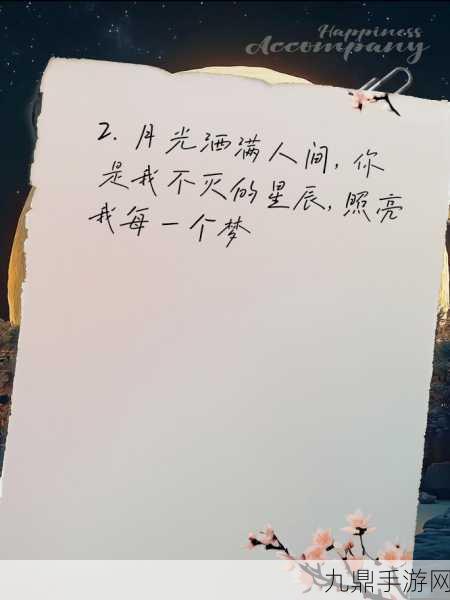 Happiness
Accompany
2. 月光洒满人间，你
是我不灭的星辰，照亮
我每一个梦
九鼎手游网